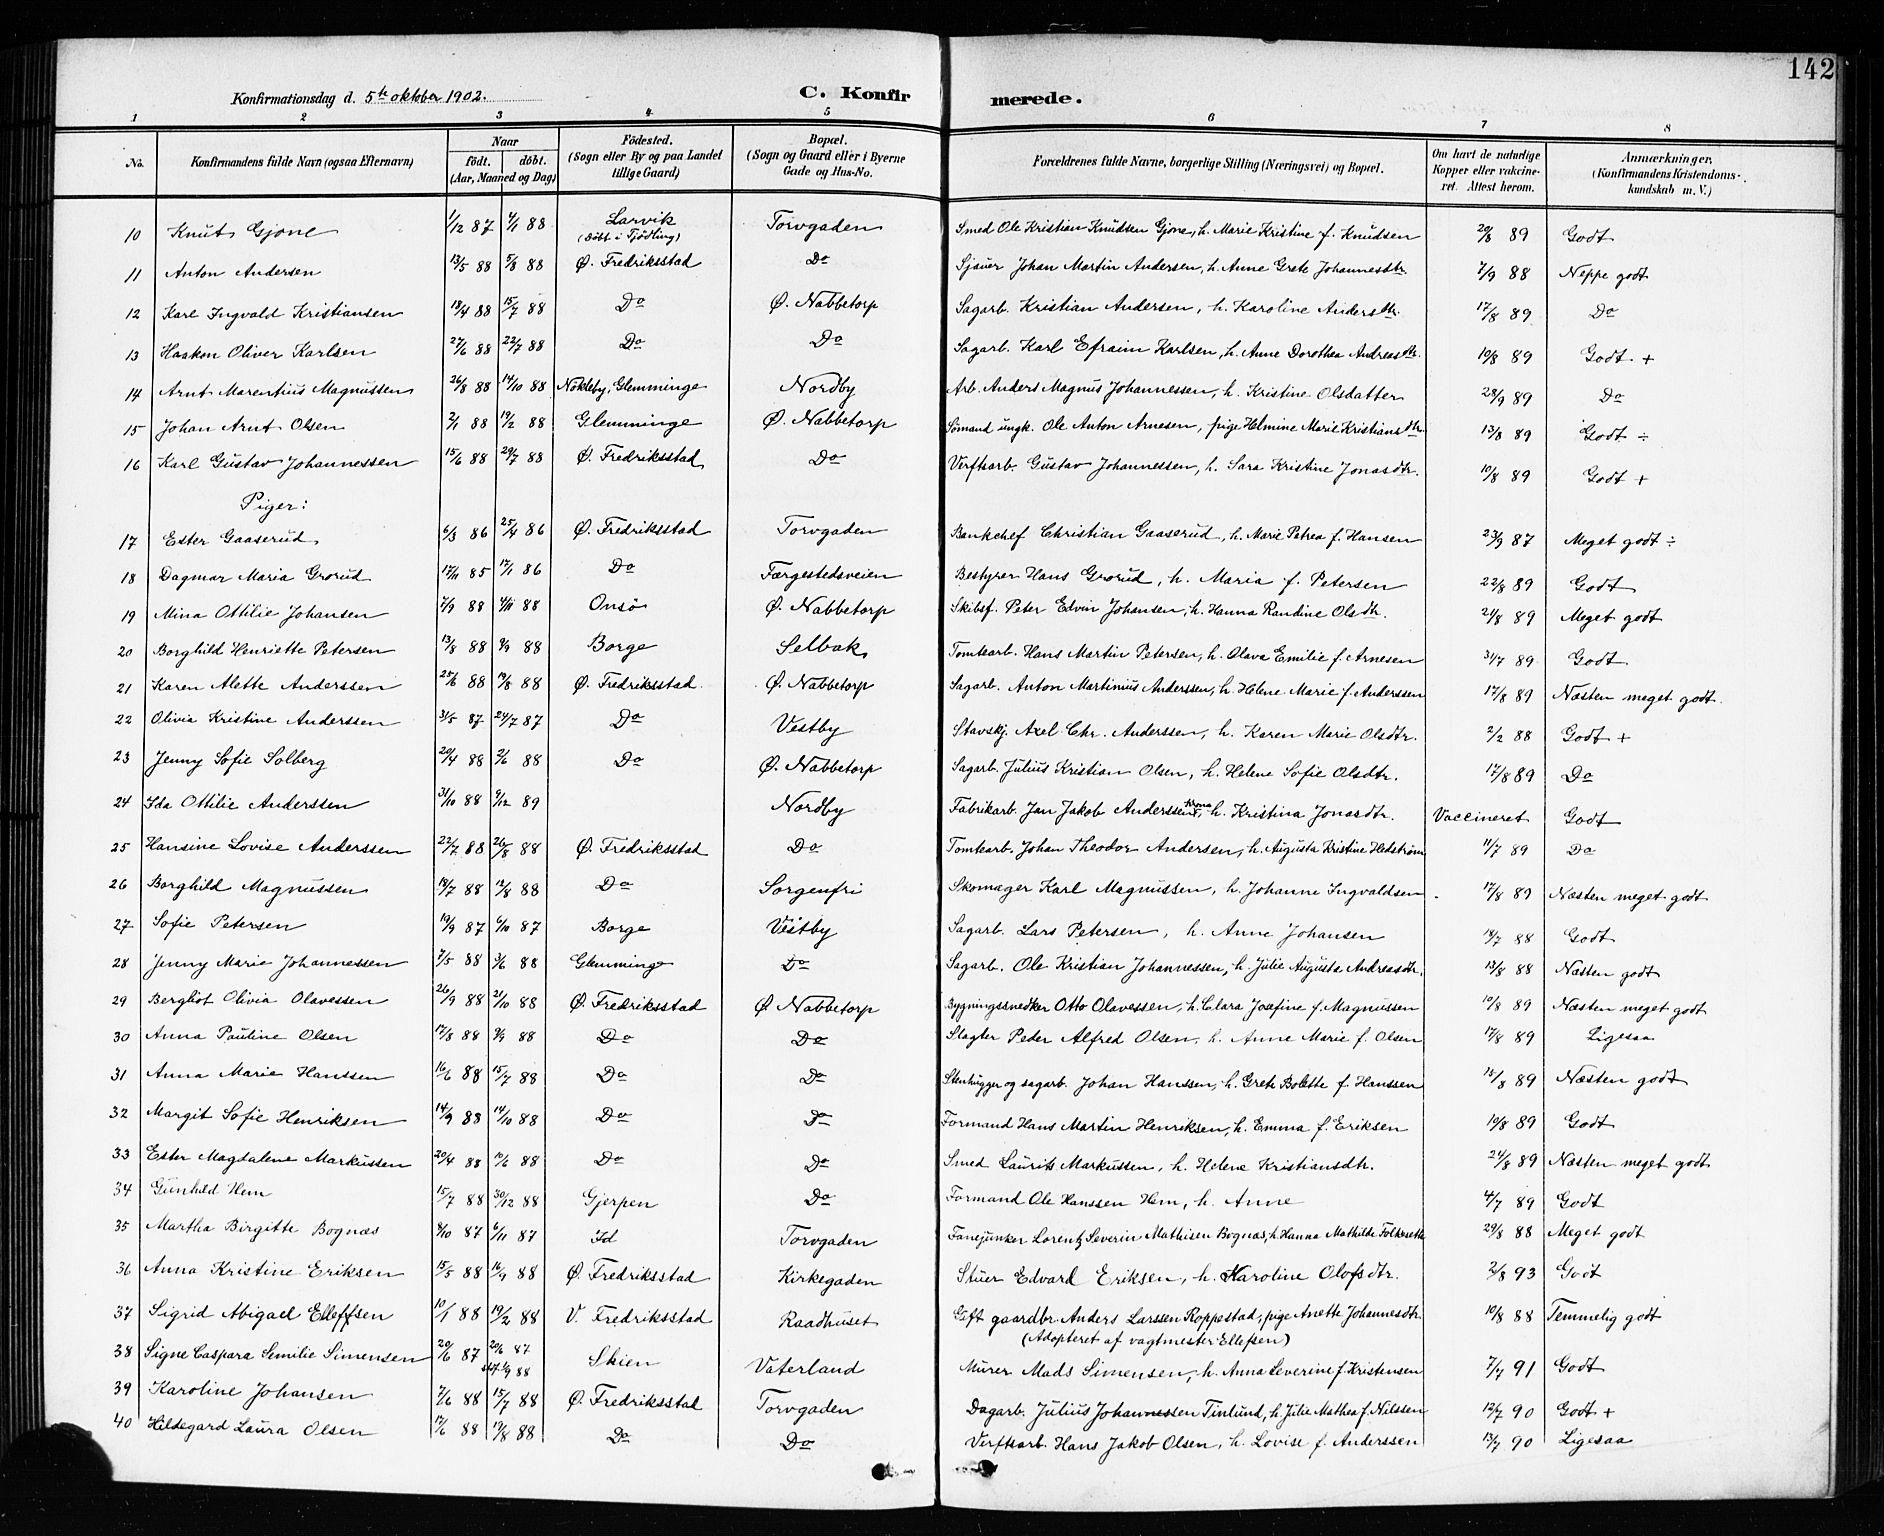 142
Konfirmationsdag d. 5te oktober 1902. C. Konfirmerede.
1 2 3 4 5 6 7 8
No. Konfirmandens fulde Navn (ogsaa Efternavn) Naar födt. döbt. (Aar, Maaned og Dag) Födested. (Sogn eller By og paa Landet tillige Gaard) Bopæl. (Sogn og Gaard eller i Byerne Gade og Hus-No. Forældrenes fulde Navne, borgerlige Stilling (Næringsvei) og Bopæl. Om havt de naturlige Kopper eller vakcineret. Attest herom. Anmærkninger, (Konfirmandens Kristendomskundskab m. V.)
10 Knut Gjone 1/12 87 4/1 88 Larvik (döbt i Tjödling) Torvgaden Smed Ole Kristian Knudsen Gjone, h. Marie Kristine f. Knudsen 20/8 89 Godt
11 Anton Andersen 13/5 88 5/8 88 Ø. Fredriksstad Do Sjauer Johan Martin Andersen, h. Anne Grete Johannesdtr. 7/9 88 Neppe godt
12 Karl Ingvald Kristiansen 18/4 88 15/7 88 Do Ø. Nabbetorp Sagarb. Kristian Andersen, h. Karoline Andersdtr. 17/8 89 Do
13 Haakon Oliver Karlsen 27/6 88 22/7 88 Do Do Sagarb. Karl Efraim Karlsen, h. Anne Dorothea Andreasdtr. 10/8 89 Godt +
14 Arnt Marentius Magnussen 26/8 88 14/10 88 Nökleby, Glemminge Nordby Arb. Anders Magnus Johannessen, h. Kristine Olsdatter 28/9 89 Do
15 Johan Arnt Olsen 2/1 88 19/2 88 Glemminge Ø. Nabbetorp Sömand ungk. Ole Anton Arnesen, pige Helmine Marie Kristiansdtr. 13/8 89 Godt ÷
16 Karl Gustav Johannessen 15/6 88 29/7 88 Ø. Fredriksstad Do Verftsarb. Gustav Johannessen, h. Sara Kristine Jonasdtr. 10/8 89 Godt +
Piger:
17 Ester Gaaserud 6/3 86 25/4 86 Ø. Fredriksstad Torvgaden Bankchef Christian Gaaserud, h. Marie Petrea f. Hansen 23/9 87 Meget godt ÷
18 Dagmar Maria Grorud 17/11 85 17/1 86 Do Færgestedsveien Bestyrer Hans Grorud, h. Maria f. Petersen 22/8 89 Godt
19 Mina Ottilie Johansen 7/9 88 4/11 88 Onsö Ø. Nabbetorp Skibsf. Peter Edvin Johansen, h. Hanna Randine Olsdtr. 21/8 89 Meget godt
20 Borghild Henriette Petersen 13/8 88 9/9 88 Borge Selbak Tomtearb. Hans Martin Petersen, h. Olava Emilie f. Arnesen 31/7 89 Godt
21 Karen Alette Anderssen 25/6 88 19/8 88 Ø. Fredriksstad Ø. Nabbetorp Sagarb. Anton Martinius Anderssen, h. Helene Marie f. Anderssen 17/8 89 Næsten meget godt.
22 Olivia Kristine Anderssen 31/5 87 24/7 87 Do Vestby Stavskj. Axel Chr. Anderssen, h. Karen Marie Olsdtr. 2/2 88 Godt +
23 Jenny Sofie Solberg 20/4 88 2/6 88 Do Ø. Nabbetorp Sagarb. Julius Kristian Olsen, h. Helene Sofie Olsdtr. 17/8 89 Do
24 Ida Ottilie Anderssen 31/10 88 9/12 89 Nordby Fabrikarb. Jan Jakob Anderssen, h. Kristina Jonasdtr. Vaccineret Godt
25 Hansine Lovise Anderssen 22/7 88 26/8 88 Ø. Fredriksstad Do Tomtearb. Johan Theodor Andersen, h. Augusta Kristine Hedström 11/7 89 Do
26 Borghild Magnussen 18/7 88 12/8 88 Do Sorgenfri Skomager Karl Magnussen, h. Johanne Ingvaldsen 17/8 89 Næsten meget godt
27 Sofie Petersen 19/9 87 6/10 87 Borge Vestby Sagarb. Lars Petersen, h. Anne Johansen 18/7 88 Godt
28 Jenny Marie Johannessen 7/5 88 3/6 88 Glemminge Do Sagarb. Ole Kristian Johannessen, h. Julie Augusta Andreasdtr. 13/8 88 Næsten godt
29 Bergliot Olivia Olavessen 26/9 88 21/10 88 Ø. Fredriksstad Ø. Nabbetorp Bygningssnedker Otto Olavessen, h. Clara Josefine f. Magnussen 10/8 89 Næsten meget godt
30 Anna Pauline Olsen 17/8 88 9/9 88 Do Do Slagter Peder Alfred Olsen, h. Anne Marie f. Olsen 17/8 89 Ligesaa
31 Anna Marie Hanssen 16/6 88 15/7 88 Do Do Stenhugger og sagarb. Johan Hanssen, h. Grete Bolette f. Hanssen 15/8 89 Næsten godt
32 Margit Sofie Henriksen 14/9 88 14/10 88 Do Do Formand Hans Martin Henriksen, h. Emma f. Eriksen 10/8 89 Godt
33 Ester Magdalene Markussen 20/4 88 10/6 88 Do Do Smed Laurits Markussen, h. Helene Kristiansdtr. 24/8 89 Næsten meget godt
34 Gunhild Hem 15/7 88 30/12 88 Gjerpen Do Formand Ole Hanssen Hem, h. Anne 4/7 89 Godt
35 Martha Birgitte Bognæs 8/10 87 6/11 87 Id Torvgaden Fanejunker Lorentz Severin Mathisen Bognæs, h. Hanna Mathilde 29/8 88 Meget godt
36 Anna Kristine Eriksen 15/5 88 16/9 88 Ø. Fredriksstad Kirkegaden Stuer Edvard Eriksen, h. Karoline Olofsdtr. 2/8 93 Godt
37 Sigrid Abigael Elleffsen 10/1 88 19/2 88 V. Fredriksstad Raadhuset Gift gaardbr. Anders Larssen Roppestad, pige Anette Johannesdtr. 10/8 88 Temmelig godt
(Adopteret af vagtmester Ellefsen)
38 Signe Caspara Semilie Simensen 20/6 87 20/6 87 Skien Vaterland Murer Mads Simensen, h. Anna Severine f. Kristensen 7/7 91 Godt
39 Karoline Johansen 7/6 88 15/7 88 Ø. Fredriksstad Torvgaden Dagarb. Julius Johannessen Tinlund, h. Julie Mathea f. Nilssen 12/7 90 Godt +
40 Hildegard Laura Olsen 17/6 88 19/8 88 Do Do Verftsarb. Hans Jakob Olsen, h. Lovise f. Anderssen 13/7 90 Ligesaa